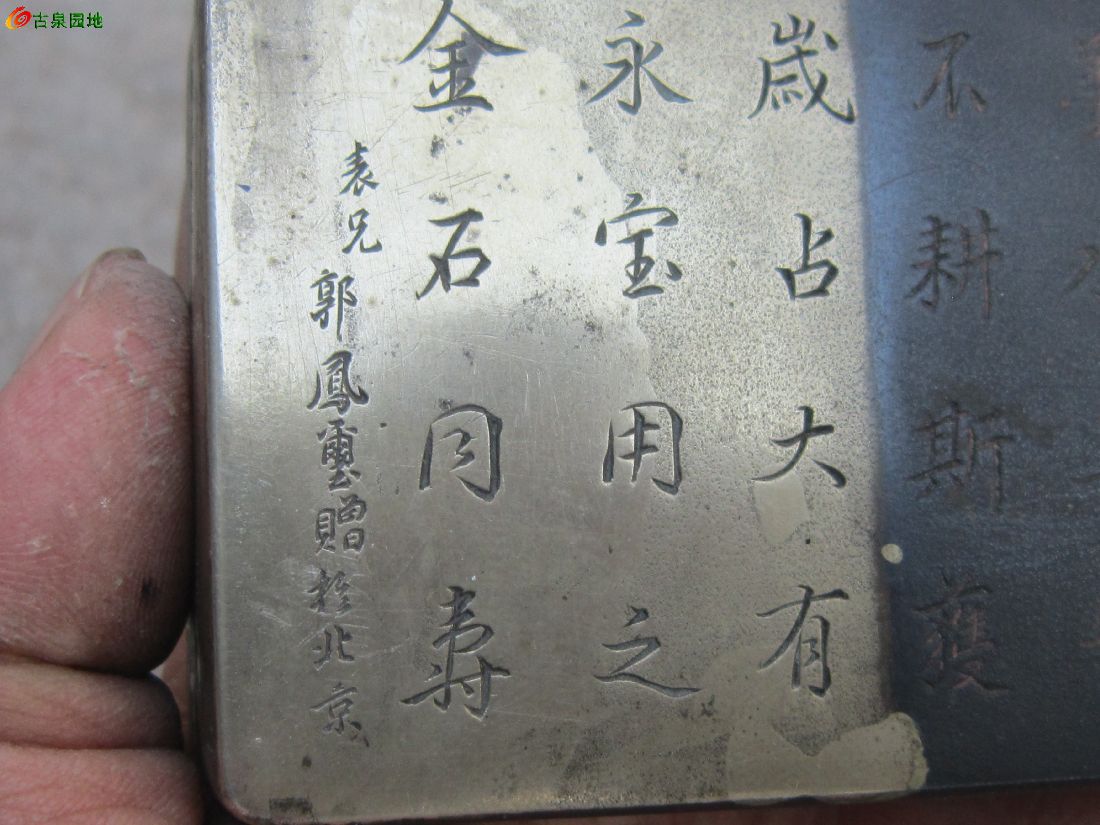 古泉园地
不耕斯穫
歲占大有
永宝用之
金石同寿
表兄
郭鳳璽贈於北京